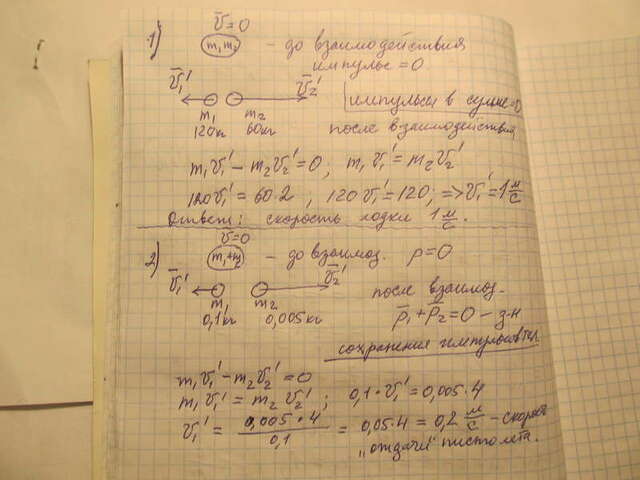 1) v̄=0
m₁m₂ - до взаимодействия
импульс = 0
v̄₁' v̄₂'
m₁ m₂ импульсы в сумме=0
120кг 60кг после взаимодействия
m₁v₁' - m₂v₂' = 0; m₁v₁' = m₂v₂'
120v₁' = 60·2; 120v₁' = 120; => v₁' = 1 м/с
Ответ: скорость лодки 1 м/с.
2) v̄=0
m₁+m₂ - до взаимод. p=0
v̄₁' v̄₂'
m₁ m₂ после взаимод.
0,1кг 0,005кг p̄₁+p̄₂=0 - з-н
сохранения импульсов
m₁v₁' - m₂v₂' = 0
m₁v₁' = m₂v₂'; 0,1·v₁' = 0,005·4
v₁' = 0,005·4 / 0,1 = 0,05·4 = 0,2 м/с - скорость
"отдачи" пистолета.